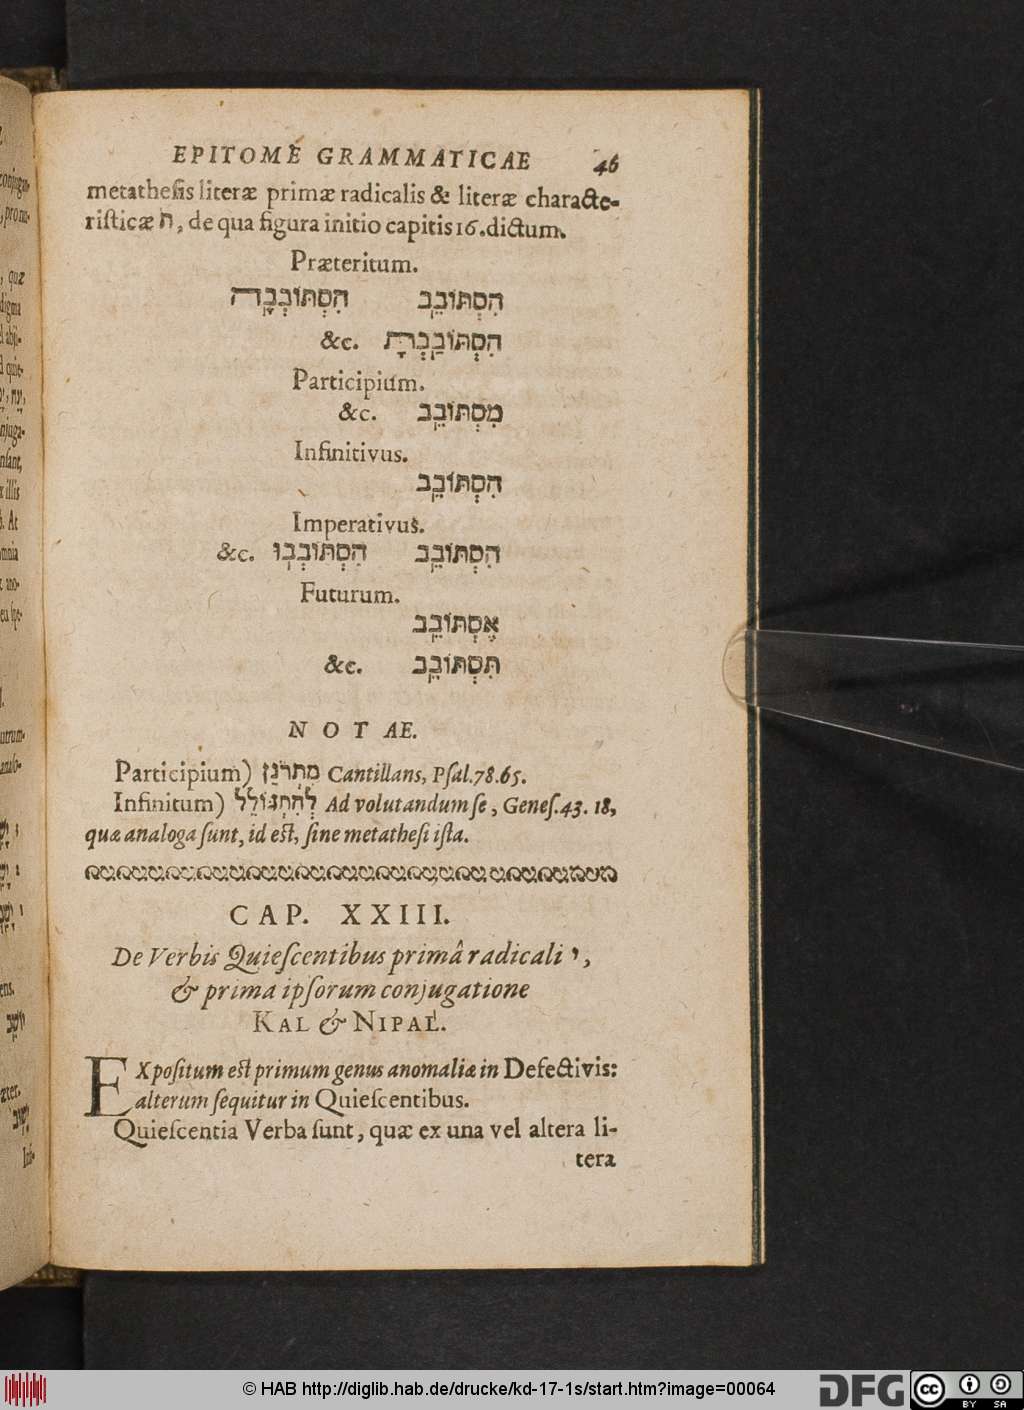 EPITOME GRAMMATICAE 46
metathesis literæ primæ radicalis & literæ characte-
risticæ ת, de qua figura initio capitis 16. dictum.
Præteritum.
הִסְתּוֹבֵב הִסְתּוֹבְבָה
הִסְתּוֹבַבְתָּ &c.
Participium.
מִסְתּוֹבֵב &c.
Infinitivus.
הִסְתּוֹבֵב
Imperativus.
הִסְתּוֹבֵב הִסְתּוֹבְבוּ &c.
Futurum.
אֶסְתּוֹבֵב
תִּסְתּוֹבֵב &c.
NOTAE.
Participium) מִתְרֹנֵן Cantillans, Psal. 78. 65.
Infinitum) לְהִתְגּוֹלֵל Ad volutandum se, Genes. 43. 18,
quæ analoga sunt, id est, sine metathesi ista.
CAP. XXIII.
De Verbis Quiescentibus primâ radicali י,
& prima ipsorum conjugatione
KAL & NIPAL.
EXpositum est primum genus anomaliæ in Defectivis:
alterum sequitur in Quiescentibus.
Quiescentia Verba sunt, quæ ex una vel altera li-
tera
© HAB http://diglib.hab.de/drucke/kd-17-1s/start.htm?image=00064
DFG
cc BY SA